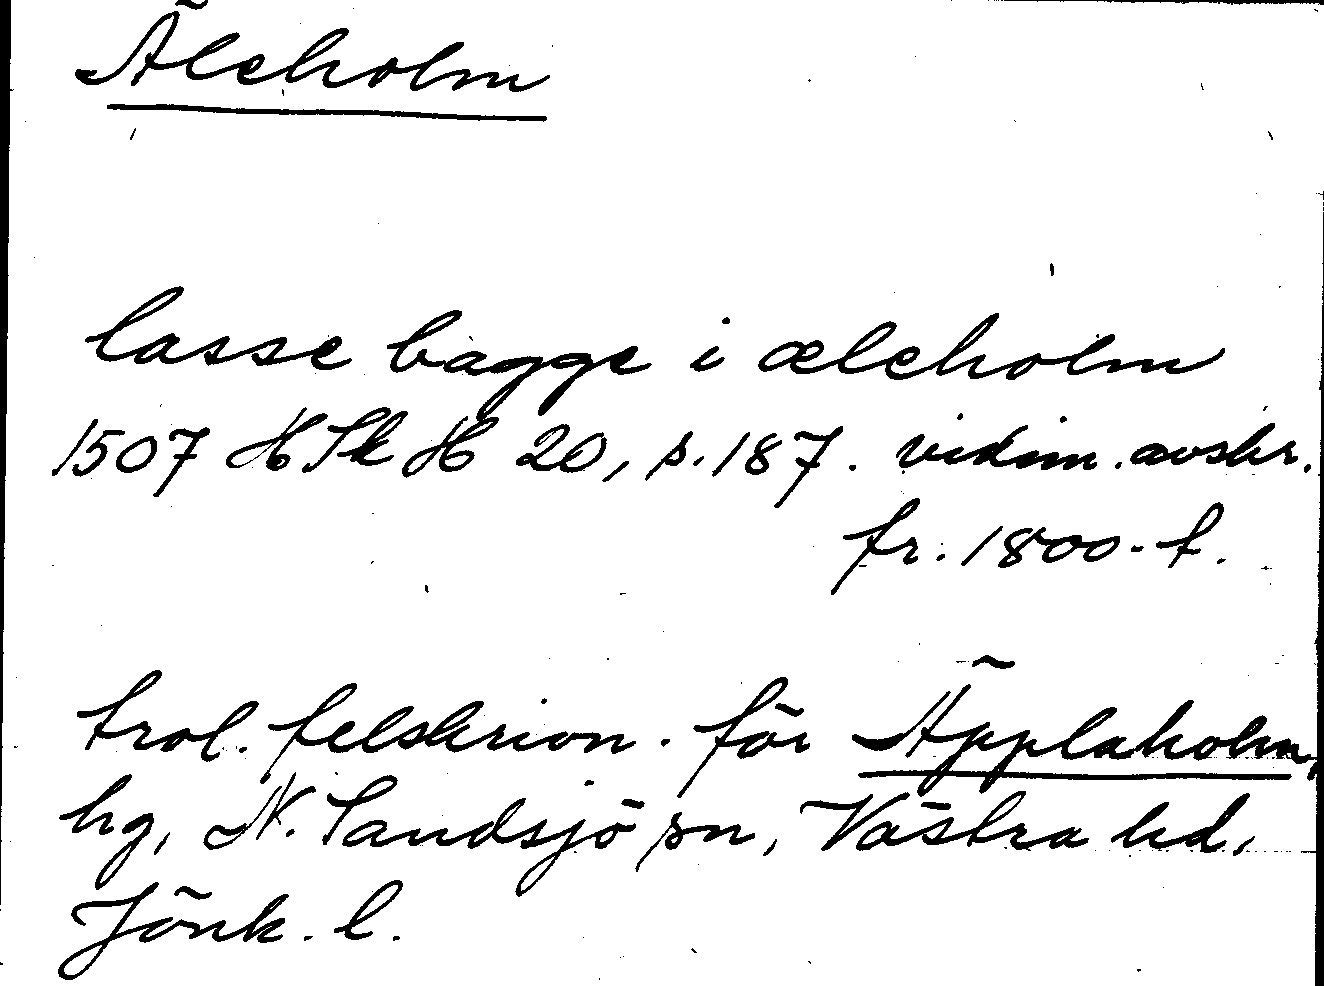 Äleholm
lasse bagge i æleholm
1507 HSkH 20, s. 187. vidim. avskr.
fr. 1800-t.
trol. felskrivn. för Äpplaholm,
hg, N. Sandsjö sn, Västra hd,
Jönk. l.